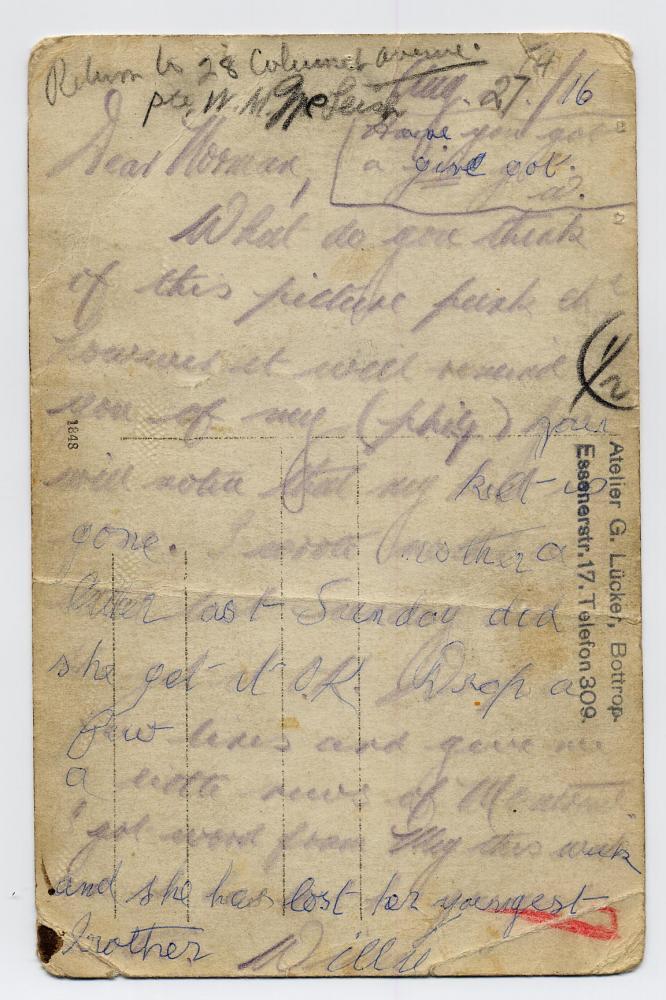 Return to 28 Columet avenue.
Pte. W. M.
Aug. 27/16
Dear Norman,
Have you got
a girl got.
W.
What do you think
of this picture
however it will remind
you of my (phiz) you
will notice that my kilt is
gone. I wrote mother a
letter last Sunday did
she get it O.K. Drop a
few lines and give me
a little news of Montreal
I got word from Meg this week
and she has lost her youngest
brother Willie
1/2
1848
Atelier G. Lücker, Bottrop.
Essenerstr. 17. Telefon 309.